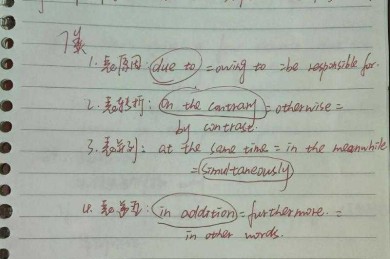 1. 表原因: due to = owing to = be responsible for.
2. 表转折: in the contrary = otherwise =
by contrast.
3. 表并列: at the same time = in the meanwhile
= simultaneously
4. 表: in addition = furthermore. =
in other words.